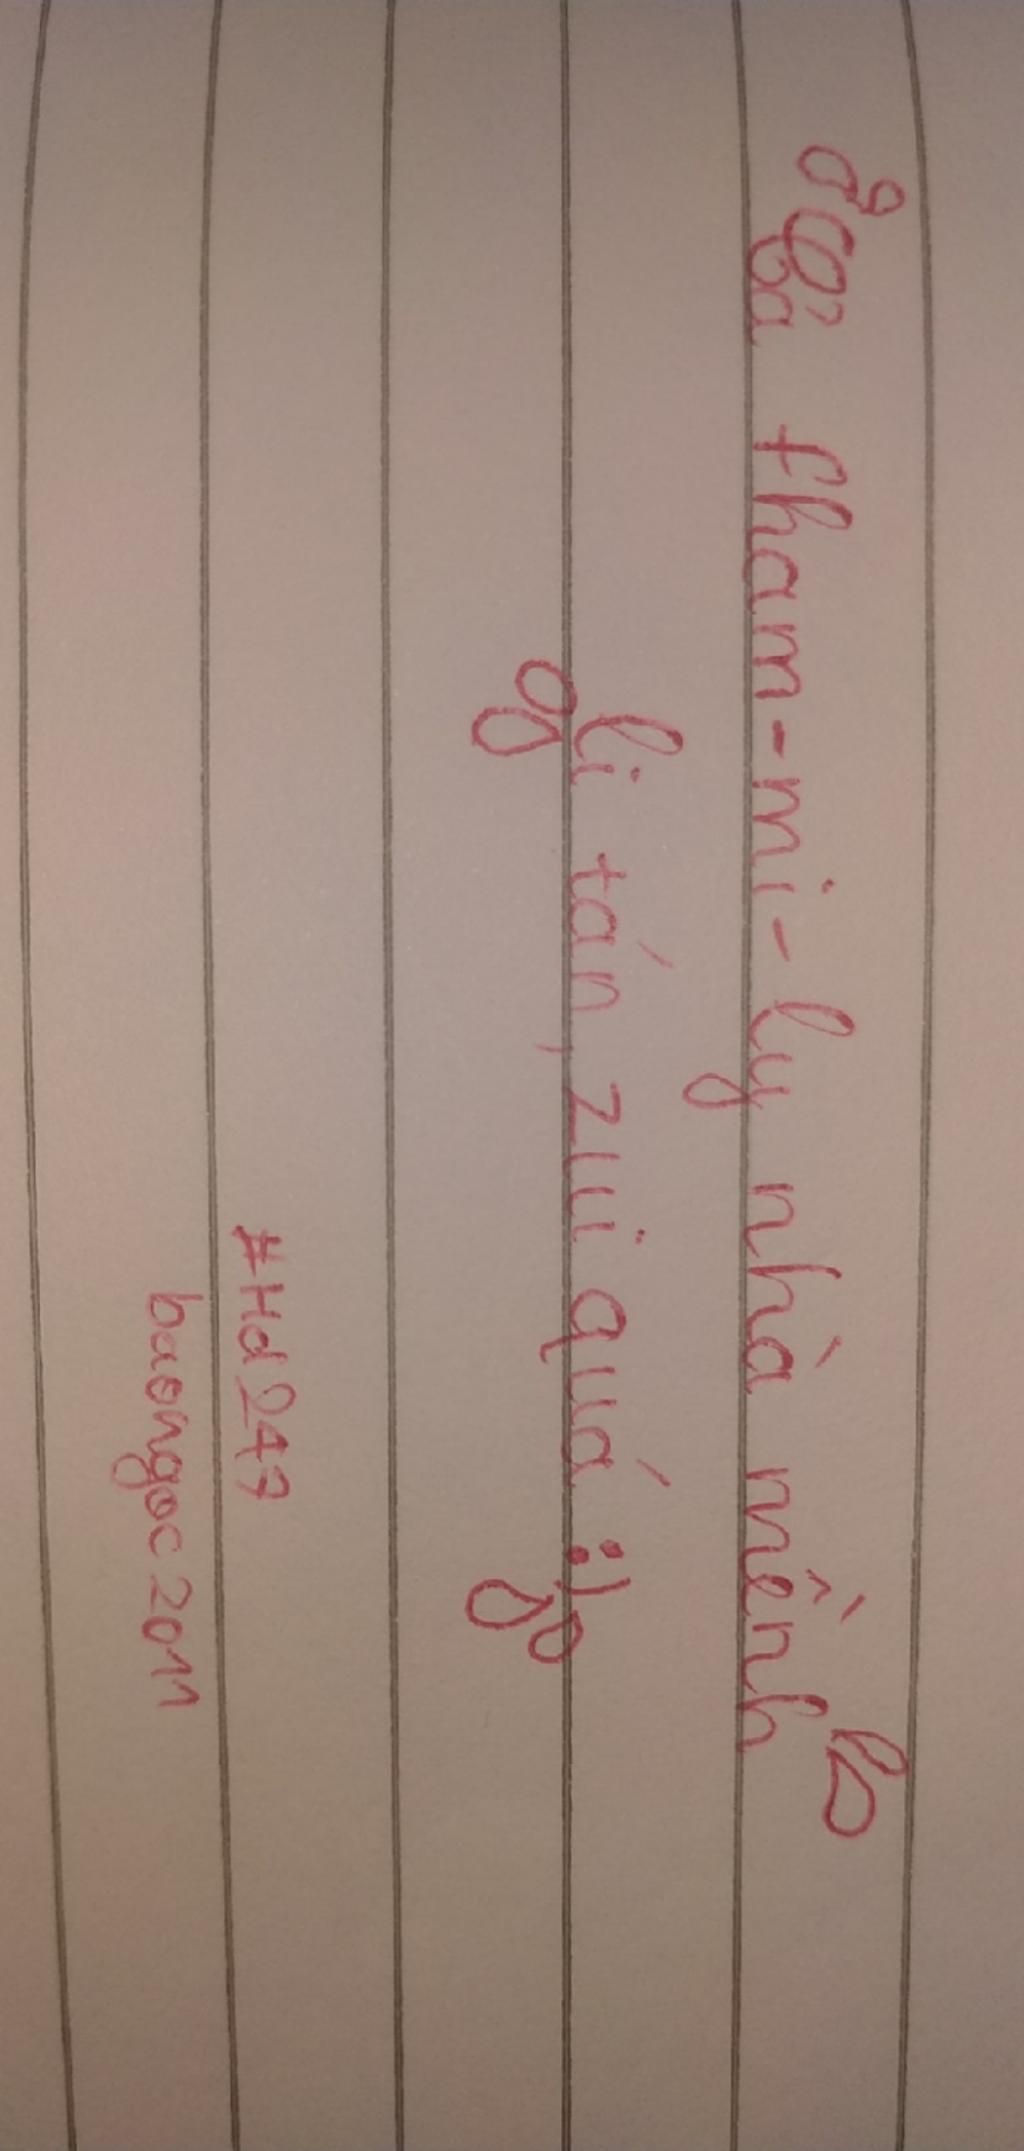 Cả fham-mi-ly nhà mềnh
li tán, zui quá :)
#Hd247
baongoc2011